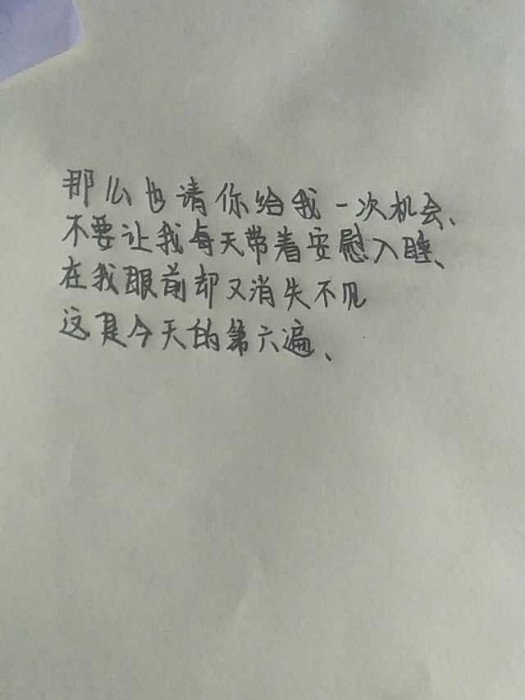 那么也请你给我一次机会、
不要让我每天带着安慰入睡、
在我眼前却又消失不见
这是今天的第六遍、